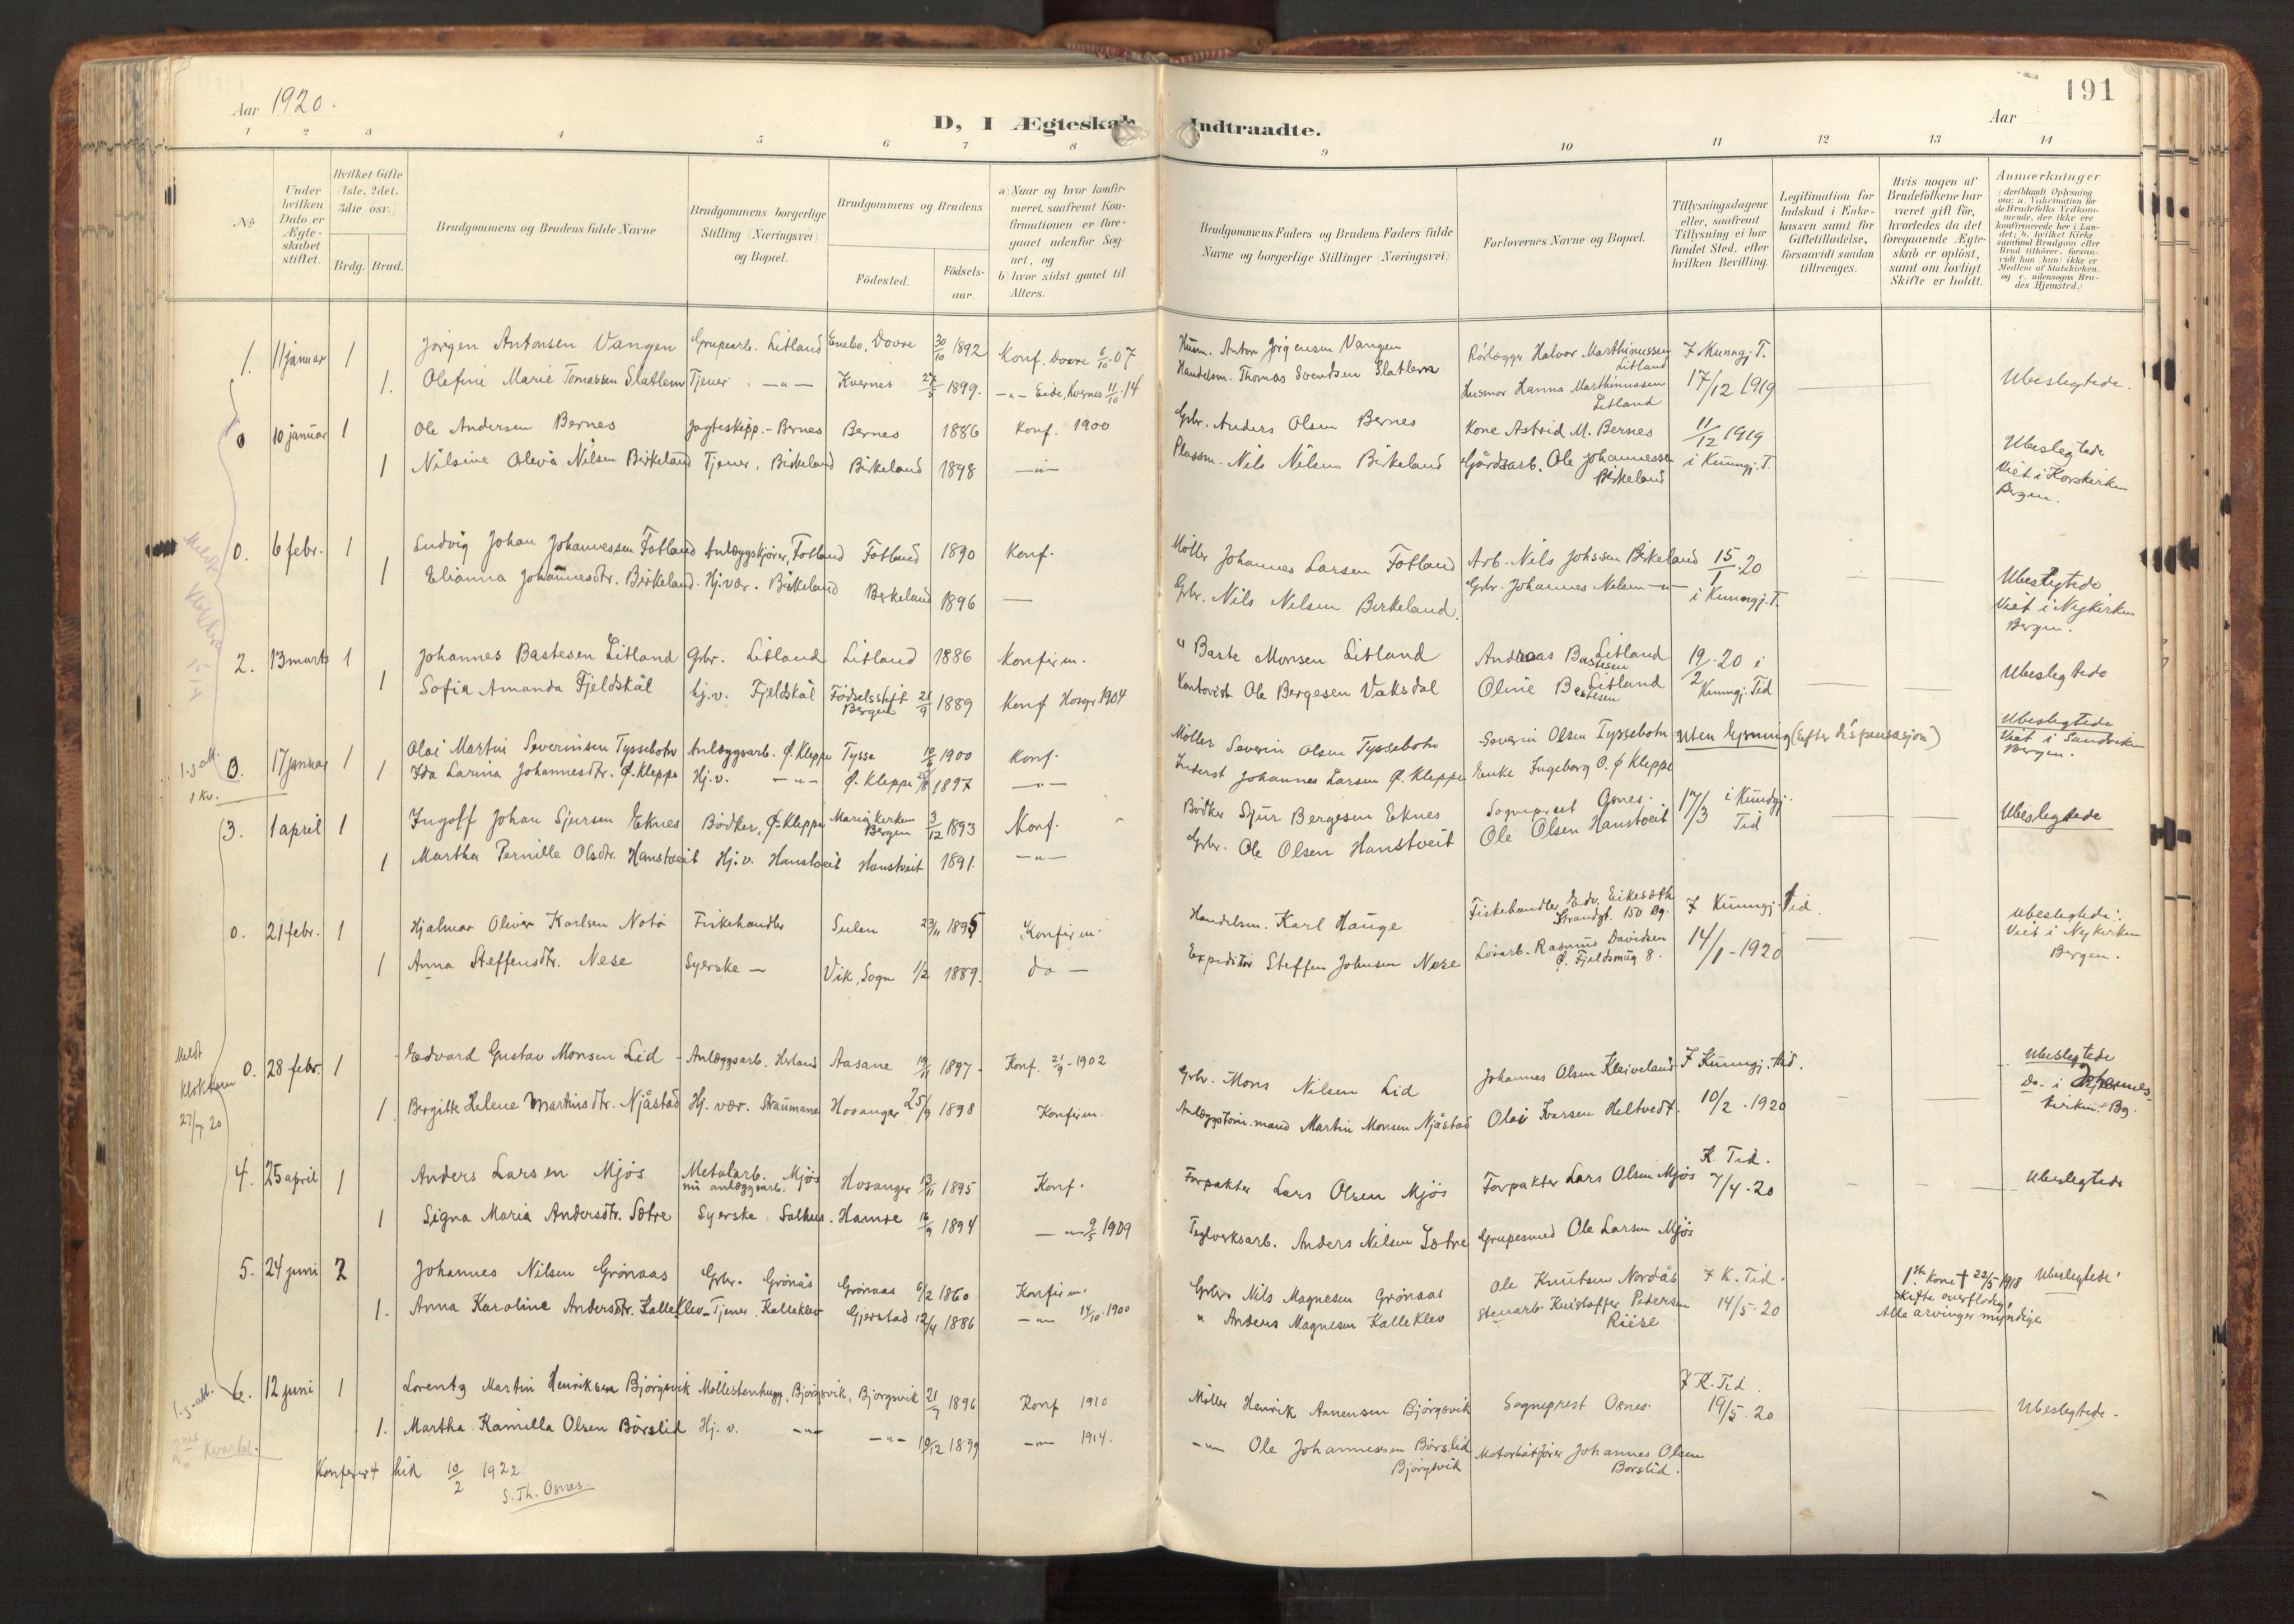 Aar 1920.
D, I Ægteskab Indtraadte.
191
Aar
1 2 3 4 5 6 7 8 9 10 11 12 13 14
No
Under hvilken Dato er Ægteskabet stiftet.
Hvilket Gifte (1ste, 2det, 3die osv.)
Brdg. Brud.
Brudgommens og Brudens fulde Navne
Brudgommens borgerlige Stilling (Næringsvei) og Bopæl.
Brudgommens og Brudens
Födested.
Födsels-aar.
a) Naar og hvor konfirmeret, saafremt Konfirmationen er foregaaet udenfor Sognet, og
b) hvor sidst gaaet til Alters.
Brudgommens Faders og Brudens Faders fulde Navne og borgerlige Stillinger (Næringsvei)
Forlovernes Navne og Bopæl.
Tillysningsdagene eller, saafremt Tillysning ei har fundet Sted, efter hvilken Bevilling.
Legitimation for Indskud i Enkekassen samt for Giftetilladelse, forsaavidt saadan tiltrænges.
Hvis nogen af Brudefolkene har været gift för, hvorledes da det foregaaende Ægteskab er oplöst, samt om lovligt Skifte er holdt.
Anmærkninger (deriblandt Oplysning om: a. Vakcination for de Brudefolks Vedkommende, der ikke ere konfirmerede her i Landet; b. hvilket Kirkesamfund Brudgom eller Brud tilhörer, forsaavidt han (hun) ikke er Medlem af Statskirken, og c. udensogns Brudes Hjemsted.)
1. 11 januar 1 Jörgen Antonsen Vangen Grupearb. Litland Enebo, Dovre 30/10 1892 Konf. Dovre 6/10 07 Husm. Anton Jörgensen Vangen Rörlægger Halvor Marthinussen Litland F. Kunngj. T.
1. Olefine Marie Tomassen Slatlem Tjener - " - Kvernes 27/5 1899. - " - Eide, Kvernes 11/10 14 Handelsm. Thomas Svendsen Slatlem Husmor Hanna Marthinussen Litland 17/12 1919 Ubeslegtede.
0 10 januar 1 Ole Andersen Bernes Jagteskipp. - Bernes Bernes 1886 Konf. 1900 Grbr. Anders Olsen Bernes Kone Astrid M. Bernes 11/12 1919
1 Nilsine Olevia Nilsen Birkeland Tjener, Birkeland Birkeland 1898 - " - Plassm. Nils Nilsen Birkeland Gårdsarb. Ole Johannessen Birkeland i Kunngj. T. Ubeslegtede Viet i Korskirken Bergen.
0. 6 febr. 1 Ludvig Johan Johannessen Fotland Anlæggskjörer, Fotland Fotland 1890 Konf. Möller Johannes Larsen Fotland Arb. Nils Johssen Birkeland 15/1 20
1 Elianna Johannesdtr. Birkeland Hj.vær. Birkeland Berkeland 1896 — Grbr. Nils Nilsen Berkeland. Grbr. Johannes Nilsen - " - i Kunngj. T. Ubeslegtede Viet i Nykirken Bergen.
2. 13 marts 1 Johannes Bastesen Litland Grbr. Litland Litland 1886 Konfirm. " Baste Monsen Litland Andreas Bastesen Litland 19/2 20 i
1 Sofie Amanda Fjeldskål hj.v. Fjeldskål Födselsstift Bergen 21/9 1889 Konf Hosgr. 1904 Kontorist Ole Bergesen Vaksdal Oline Bastesen Litland Kunngj. Tid Ubeslegtede
0. 17 januar 1 Olai Martin Severinsen Tyssebotn Anlæggsarb. Ø. Kleppe Tysse 1900 Konf. Möller Severin Olsen Tyssebotn Severin Olsen Tyssebotn uten lysning (Efter dispensasjon) Ubeslegtede Viet i Sandviken Bergen.
1 Ida Larina Johannesdtr. Ø. Kleppe Hj.v. - " - Ø. Kleppe 1897 - " - Inderst Johannes Larsen Ø. Kleppe Enke Ingeborg O. Ø Kleppe
3. 1 april 1 Ingolf Johan Sjursen Eknes Bödker, Ø-Kleppe Mariakirken Bergen 3/12 1893 Konf. Bödker Sjur Bergesen Eknes Sogneprest Osnes 17/3 i Kundgj. Tid Ubeslegtede
1 Martha Pernille Olsdtr. Hanstveit Hj.v. Hanstveit Hanstveit 1891. - " - Grbr. Ole Olsen Hanstveit Ole Olsen Hanstveit
0. 21 febr. 1 Hjalmar Oliver Karlsen Notö Fiskehandler Sulen 23/11 1895 Konfirm. Handelsm. Karl Hauge Fiskehandler Edv. Eikesæth Strandgt. 150 Bg. F Kunngj. tid.
1 Anna Steffensdtr. Nese Syerske - Vik, Sogn 1/2 1889. do - Expeditör Steffen Johnsen Nese Lösarb. Rasmus Davidsen Ø. Fjeldsmug 8. 14/1-1920 Ubeslegtede. Viet i Nykirken Bergen.
0. 28 febr. 1 Edvard Gustav Monsen Lid - Anlæggsarb. Herland Aasane 19/11 1897 - Konf. 21/9 - 1902 Grbr. Mons Nilsen Lid Johannes Olsen Kleiveland F Kunngj. tid.
1 Bergitte Helene Martinsdtr. Njåstad Hj. vær. Straumane Hosanger 25/9 1898 Konfirm. Anlæggstöm.mand Martin Monsen Njåstad Olai Iversen Heltvedt. 10/2. 1920 Ubeslegtede Do. i Johanneskirken. Bg.
4. 25 april 1 Anders Larsen Mjös Metalarb. nu anlæggsarb. Mjös Hosanger 13/11 1895 Konf. Forpakter Lars Olsen Mjös Forpakter Lars Olsen Mjös K. Tid. 7/4-20 Ubeslegtede
1 Signa Maria Andersdtr. Sætre Syerske Salhus. Hamre 16/9 1894 - " - 9/5 1909 Teglverksarb. Anders Nilsen Sætre Grupesmed Ole Larsen Mjös
5. 24 juni 2 Johannes Nilsen Grönaas Grbr. Grönås Grönaas 6/2 1860 Konfirm. Grbr. Nils Magnesen Grönaas Ole Knutsen Nordås F K. Tid. 1ste kone † 22/5 1918 Skifte overflödig, Alle arvinger myndige Ubeslegtede
1. Anna Karoline Andersdtr. Kalleklev Tjener Kalleklev Gjerstad 12/4 1886 - " - 14/10 1900 " Anders Magnesen Kalleklev Stenarb. Kristoffer Pedersen Riise 14/5-20
6. 12 juni 1 Lorentz Martin Henriksen Bjørgsvik Møllestenhugg. Bjørgsvik, Bjorgsvik 21/7 1896 Konf 1910 Møller Henrik Annensen Bjørgsvik Sogneprest Osnes F K. Tid. 19/5-20 Ubeslegtede
1. Martha Kamilla Olsen Börslid Hj. v. - " - - " - 19/12 1899 - " - 1914. - " - Ole Johannessen Börslid Bjorgsvik Motorbåtförer Johannes Olsen Börslid.
Meldt Klokkeren 15/4
1.s.att. 1 Kv.
Meldt Klokkeren 27/4 20
1.s.att. Kvartal.
Konferert hid 10/2 1922
S. Th. Osnes